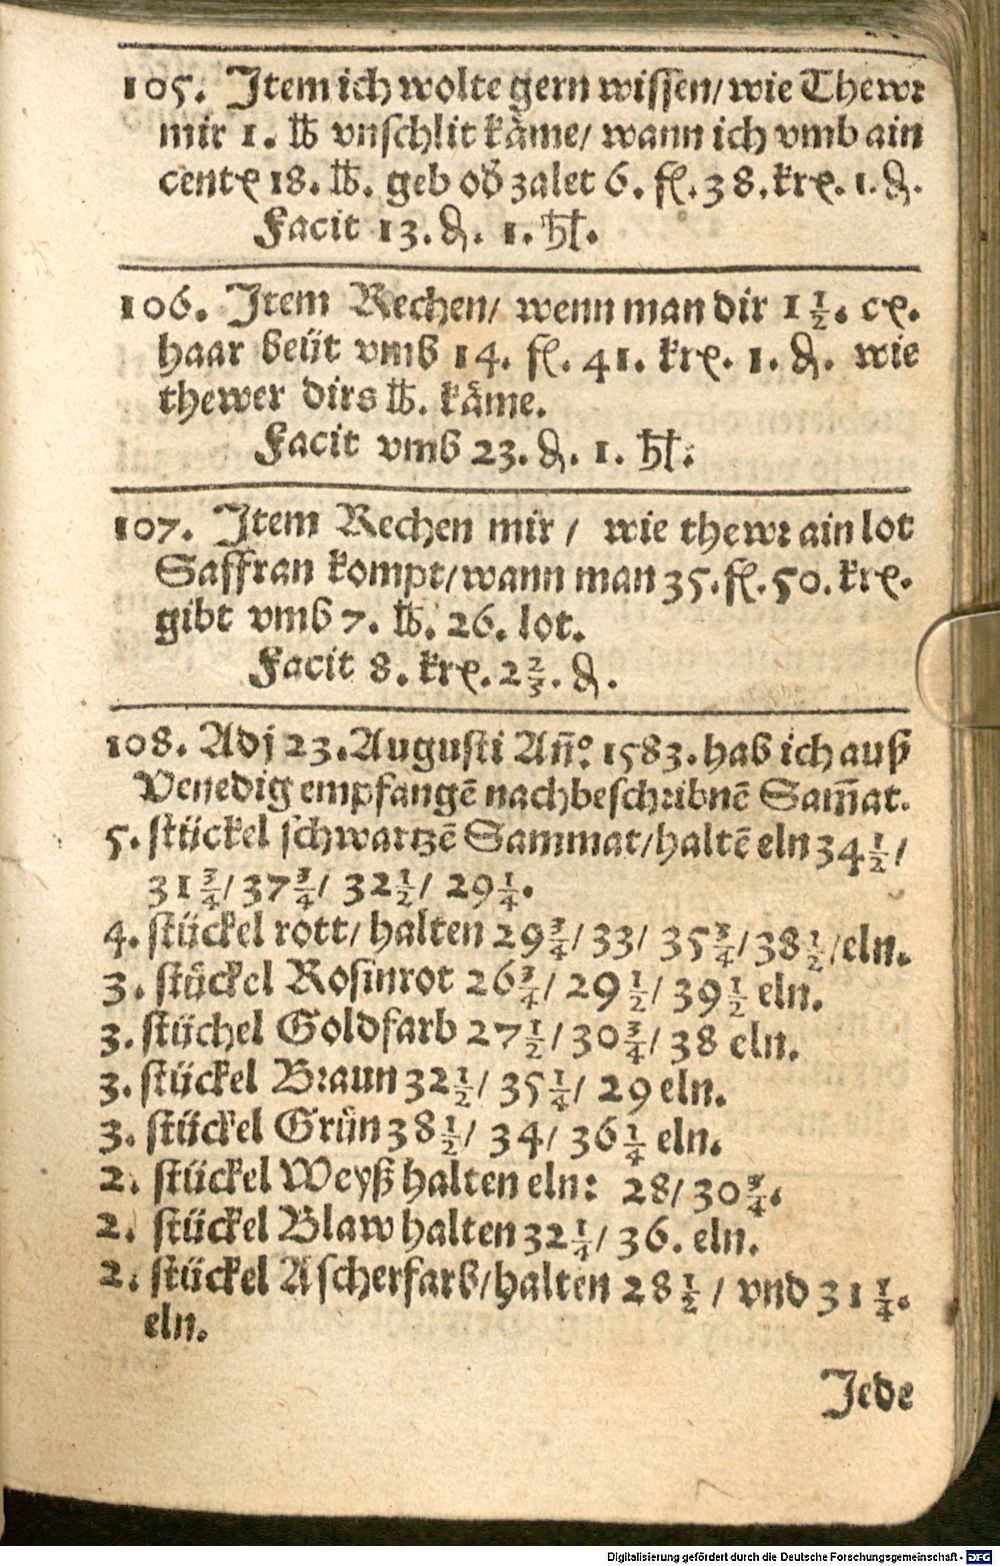 105. Item ich wolte gern wissen/ wie Thewr
mir 1. ℔ vnschlit kåme/ wann ich vmb ain
centꝫ 18. ℔. geb od̕ zalet 6. fl. 38. krꝫ. 1. ₰.
Facit 13. ₰. 1. hl.
106. Item Rechen/ wenn man dir 1 1/2. cꝫ.
haar beüt vmb 14. fl. 41. krꝫ. 1. ₰. wie
thewer dirs ℔. kåme.
Facit vmb 23. ₰. 1. hl.
107. Item Rechen mir / wie thewr ain lot
Saffran kompt/wann man 35. fl. 50. krꝫ.
gibt vmb 7. ℔. 26. lot.
Facit 8. krꝫ. 2 2/5. ₰.
108. Adj 23. Augusti An̄º 1583. hab ich auß
Venedig empfangē nachbeschribnē Sam̄at.
5. stückel schwartzē Sammat/haltē eln 34 1/2/
31 3/4/ 37 3/4/ 32 1/2/ 29 1/4.
4. stückel rott/ halten 29 3/4/ 33/ 35 3/4/ 38 1/2/eln.
3. stückel Rosinrot 26 3/4/ 29 1/2/ 39 1/2 eln.
3. stüchel Goldfarb 27 1/2/ 30 3/4/ 38 eln.
3. stückel Braun 32 1/2/ 35 1/4/ 29 eln.
3. stückel Grün 38 1/2/ 34/ 36 1/4 eln.
2. stückel Weyß halten eln: 28/ 30 3/4.
2. stückel Blaw halten 32 1/4/ 36. eln.
2. stückel Ascherfarb/halten 28 1/2 / vnd 31 1/4.
eln.
Jede
Digitalisierung gefördert durch die Deutsche Forschungsgemeinschaft - DFG